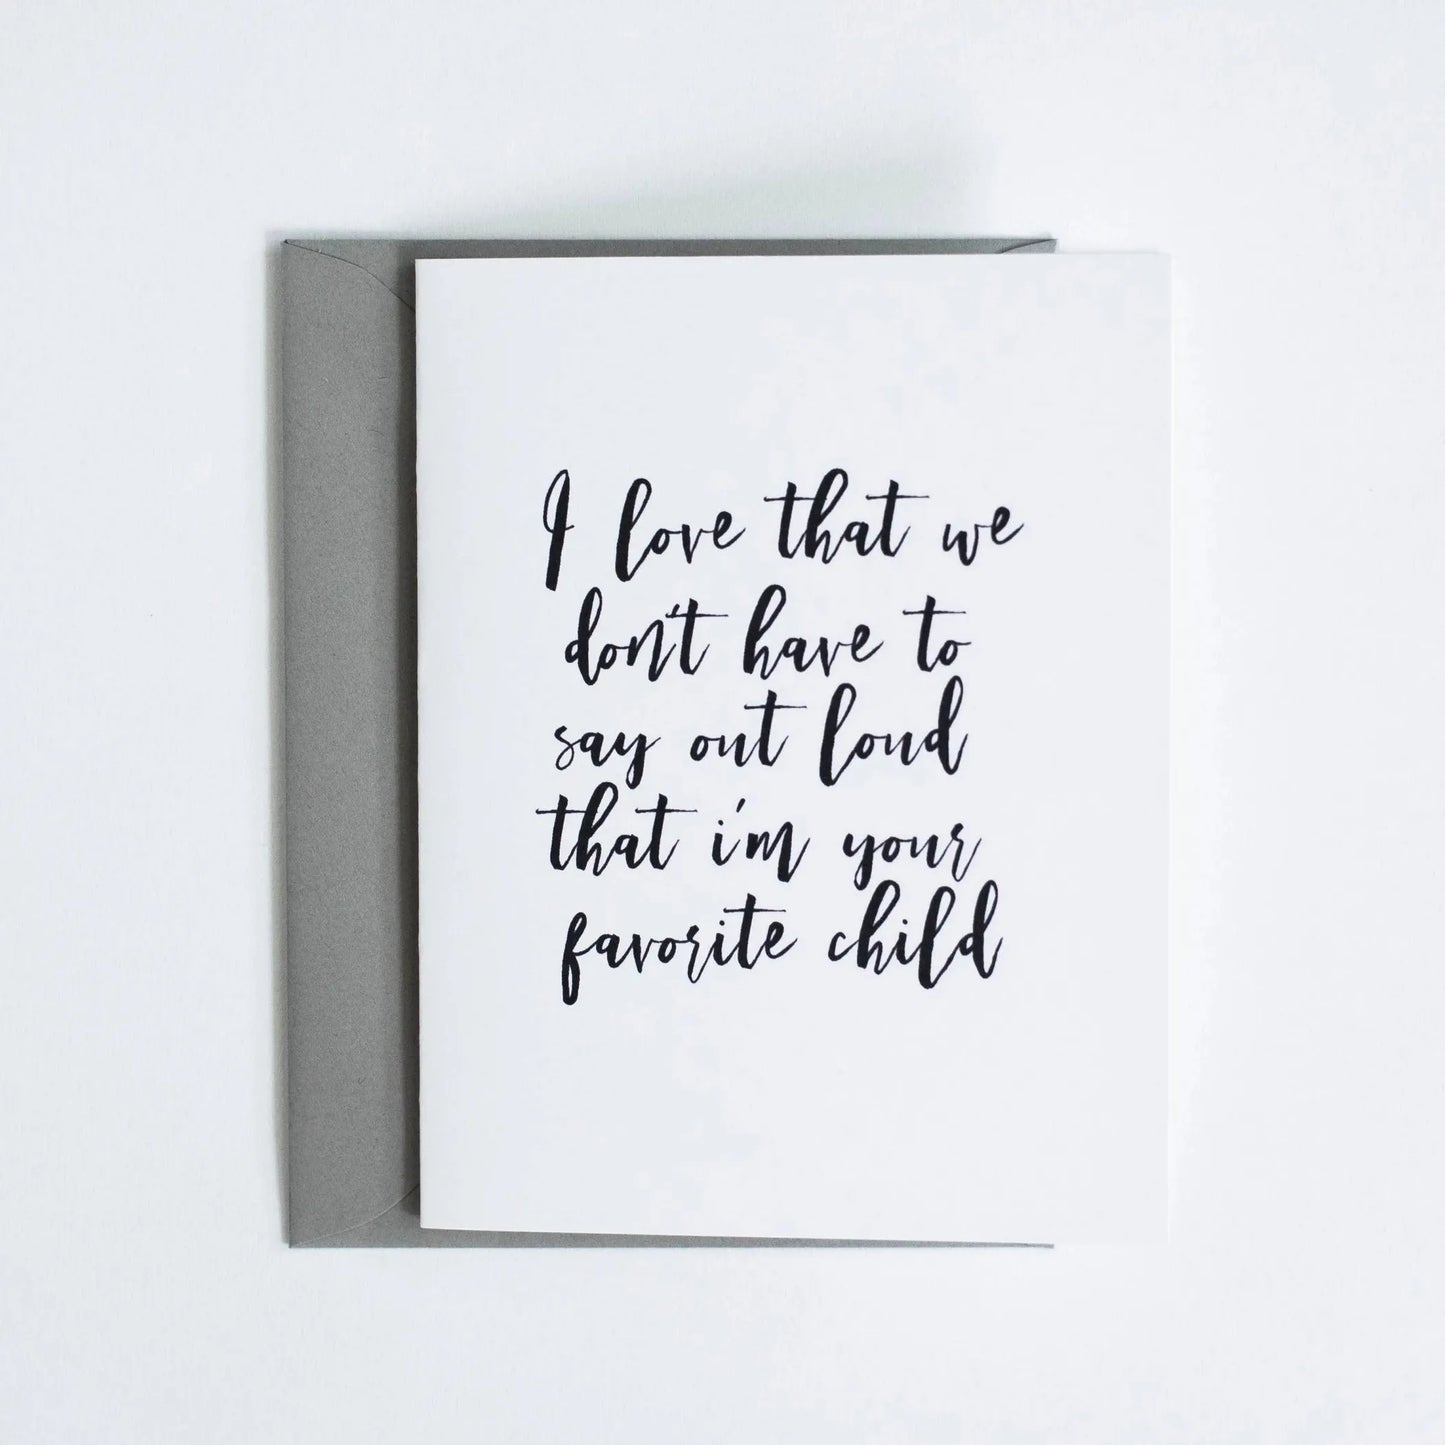 I love that we
don't have to
say out loud
that i'm your
favorite child